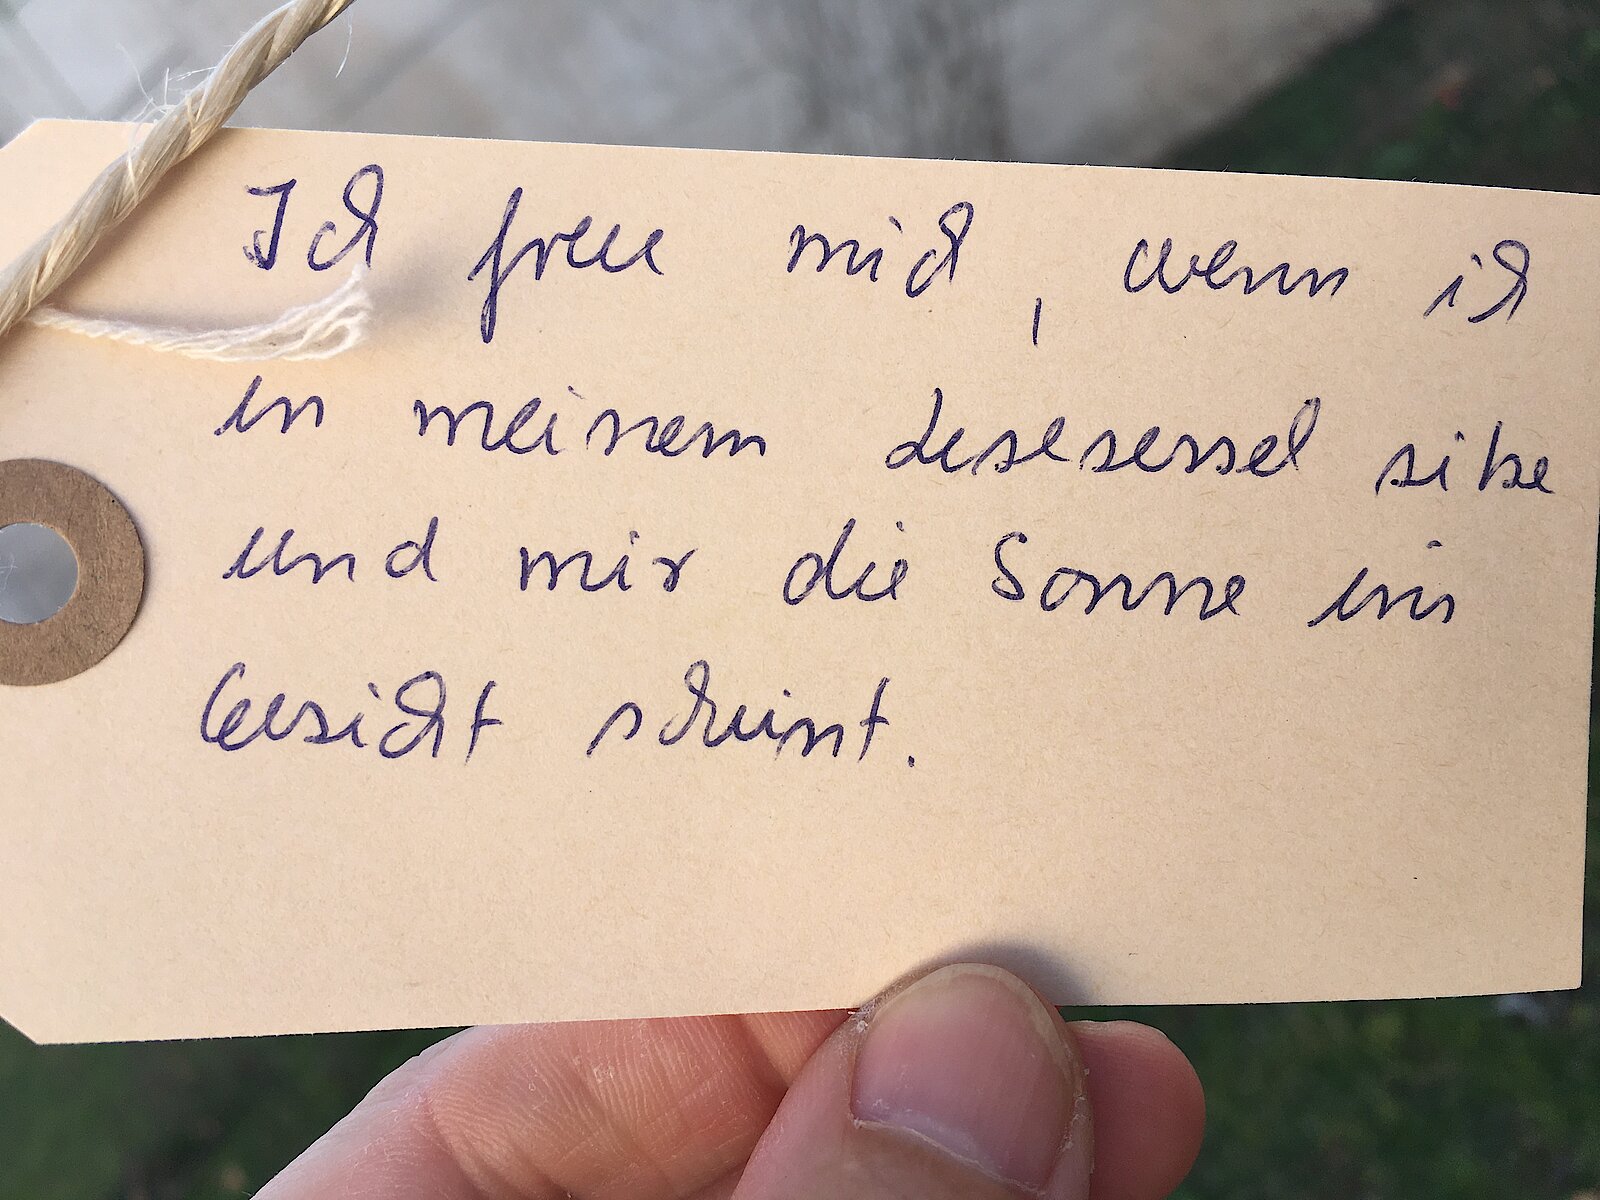 Ich freue mich, wenn ich
in meinem Lesesessel sitze
und mir die Sonne ins
Gesicht scheint.